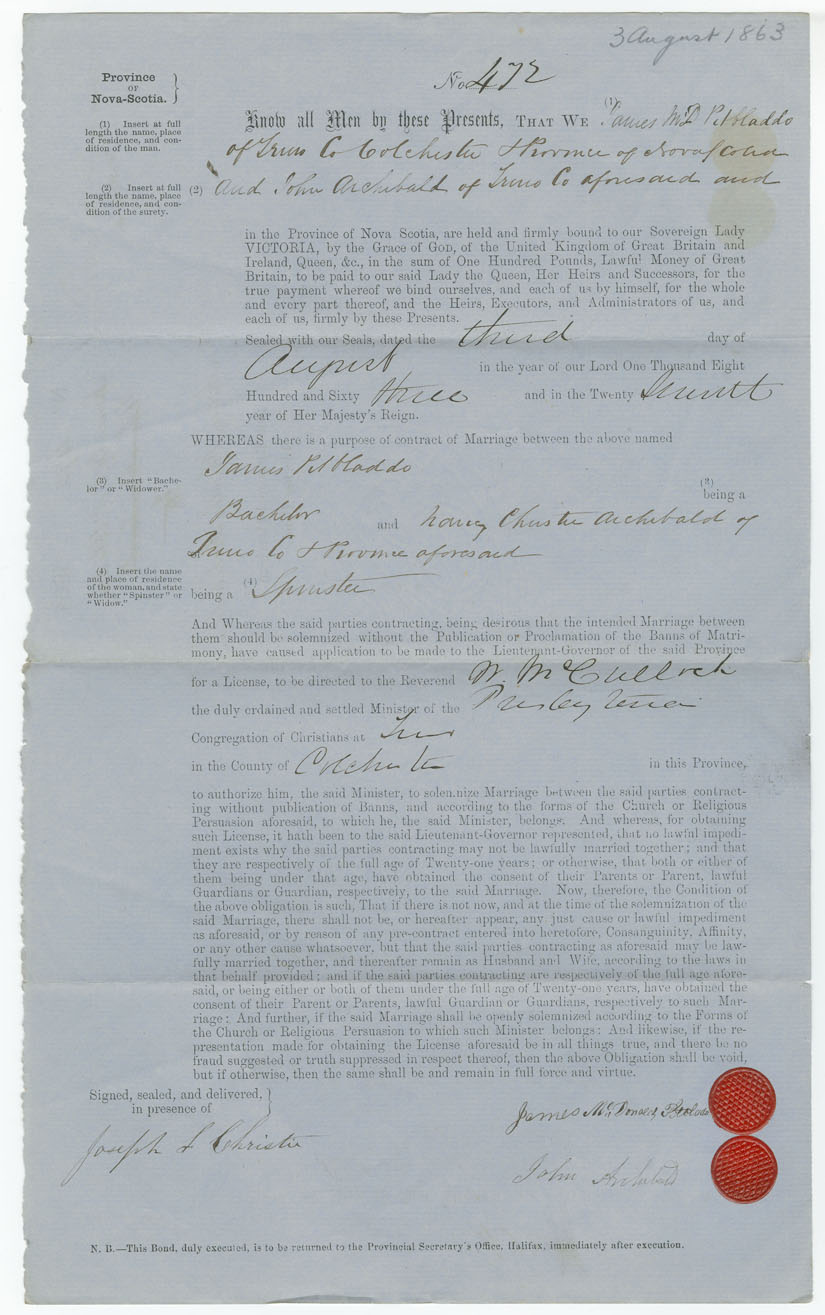 3 August 1863
Province
OF
Nova-Scotia.
No. 472
(1) Insert at full
length the name, place
of residence, and con-
dition of the man.
Know all Men by these Presents, THAT WE (1) James McD Pitbladdo
of Truro Co Colchester & Province of Nova Scotia
(2) Insert at full
length the name, place
of residence, and con-
dition of the surety.
(2) And John Archibald of Truro Co aforesaid and
in the Province of Nova Scotia, are held and firmly bound to our Sovereign Lady
VICTORIA, by the Grace of GOD, of the United Kingdom of Great Britain and
Ireland, Queen, &c., in the sum of One Hundred Pounds, Lawful Money of Great
Britain, to be paid to our said Lady the Queen, Her Heirs and Successors, for the
true payment whereof we bind ourselves, and each of us by himself, for the whole
and every part thereof, and the Heirs, Executors, and Administrators of us, and
each of us, firmly by these Presents.
Sealed with our Seals, dated the third day of
August in the year of our Lord One Thousand Eight
Hundred and Sixty three and in the Twenty
year of Her Majesty's Reign.
WHEREAS there is a purpose of contract of Marriage between the above named
James Pitbladdo
(3) Insert "Bache-
lor" or "Widower."
(3)
being a
Bachelor and Nancy Christie Archibald of
Truro Co & Province aforesaid
(4) Insert the name
and place of residence
of the woman, and state
whether "Spinster" or
"Widow."
being a (4) Spinster
And Whereas the said parties contracting, being desirous that the intended Marriage between
them should be solemnized without the Publication or Proclamation of the Banns of Matri-
mony, have caused application to be made to the Lieutenant-Governor of the said Province
for a License, to be directed to the Reverend W. McCulloch
the duly ordained and settled Minister of the Presbyterian
Congregation of Christians at Truro
in the County of Colchester in this Province,
to authorize him, the said Minister, to solemnize Marriage between the said parties contract-
ing without publication of Banns, and according to the forms of the Church or Religious
Persuasion aforesaid, to which he, the said Minister, belongs. And whereas, for obtaining
such License, it hath been to the said Lieutenant-Governor represented, that no lawful impedi-
ment exists why the said parties contracting may not be lawfully married together; and that
they are respectively of the full age of Twenty-one years; or otherwise, that both or either of
them being under that age, have obtained the consent of their Parents or Parent, lawful
Guardians or Guardian, respectively, to the said Marriage. Now, therefore, the Condition of
the above obligation is such, That if there is not now, and at the time of the solemnization of the
said Marriage, there shall not be, or hereafter appear, any just cause or lawful impediment
as aforesaid, or by reason of any pre-contract entered into heretofore, Consanguinity, Affinity,
or any other cause whatsoever, but that the said parties contracting as aforesaid may be law-
fully married together, and thereafter remain as Husband and Wife, according to the laws in
that behalf provided; and if the said parties contracting are respectively of the full age afore-
said, or being either or both of them under the full age of Twenty-one years, have obtained the
consent of their Parent or Parents, lawful Guardian or Guardians, respectively to such Mar-
riage: And further, if the said Marriage shall be openly solemnized according to the Forms of
the Church or Religious Persuasion to which such Minister belongs: And likewise, if the re-
presentation made for obtaining the License aforesaid be in all things true, and there be no
fraud suggested or truth suppressed in respect thereof, then the above Obligation shall be void,
but if otherwise, then the same shall be and remain in full force and virtue.
Signed, sealed, and delivered,
in presence of
James McDonald
Joseph S Christie
John Archibald
N. B.—This Bond, duly executed, is to be returned to the Provincial Secretary's Office, Halifax, immediately after execution.